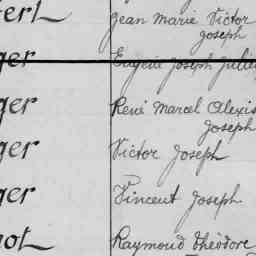 ert Jean Marie Victor
Joseph
ger Eugène Joseph Julien
ger René Marcel Alexis
Joseph
ger Victor Joseph
ger Vincent Joseph
not Raymond Théodore